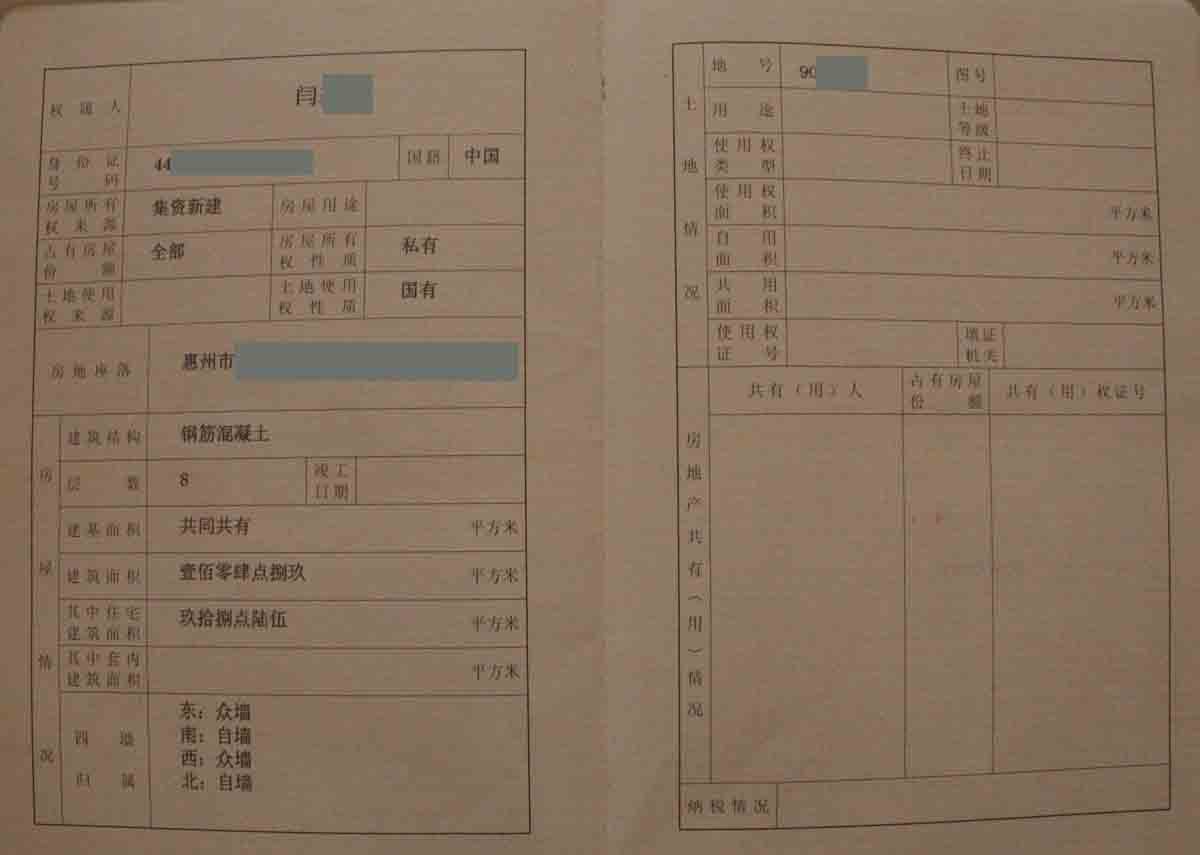 权属人 闫
身份证号码 44 国籍 中国
房屋所有权来源 集资新建 房屋用途
占有房屋份额 全部 房屋所有权性质 私有
土地使用权来源 土地使用权性质 国有
房地座落 惠州市
房屋情况
建筑结构 钢筋混凝土
层数 8 竣工日期
建基面积 共同共有 平方米
建筑面积 壹佰零肆点捌玖 平方米
其中住宅建筑面积 玖拾捌点陆伍 平方米
其中套内建筑面积 平方米
四墙归属
东：众墙
南：自墙
西：众墙
北：自墙
土地情况
地号 90 图号
用途 土地等级
使用权类型 终止日期
使用权面积 平方米
自用面积 平方米
共用面积 平方米
使用权证号 填证机关
房地产共有（用）情况
共有（用）人 占有房屋份额 共有（用）权证号
纳税情况